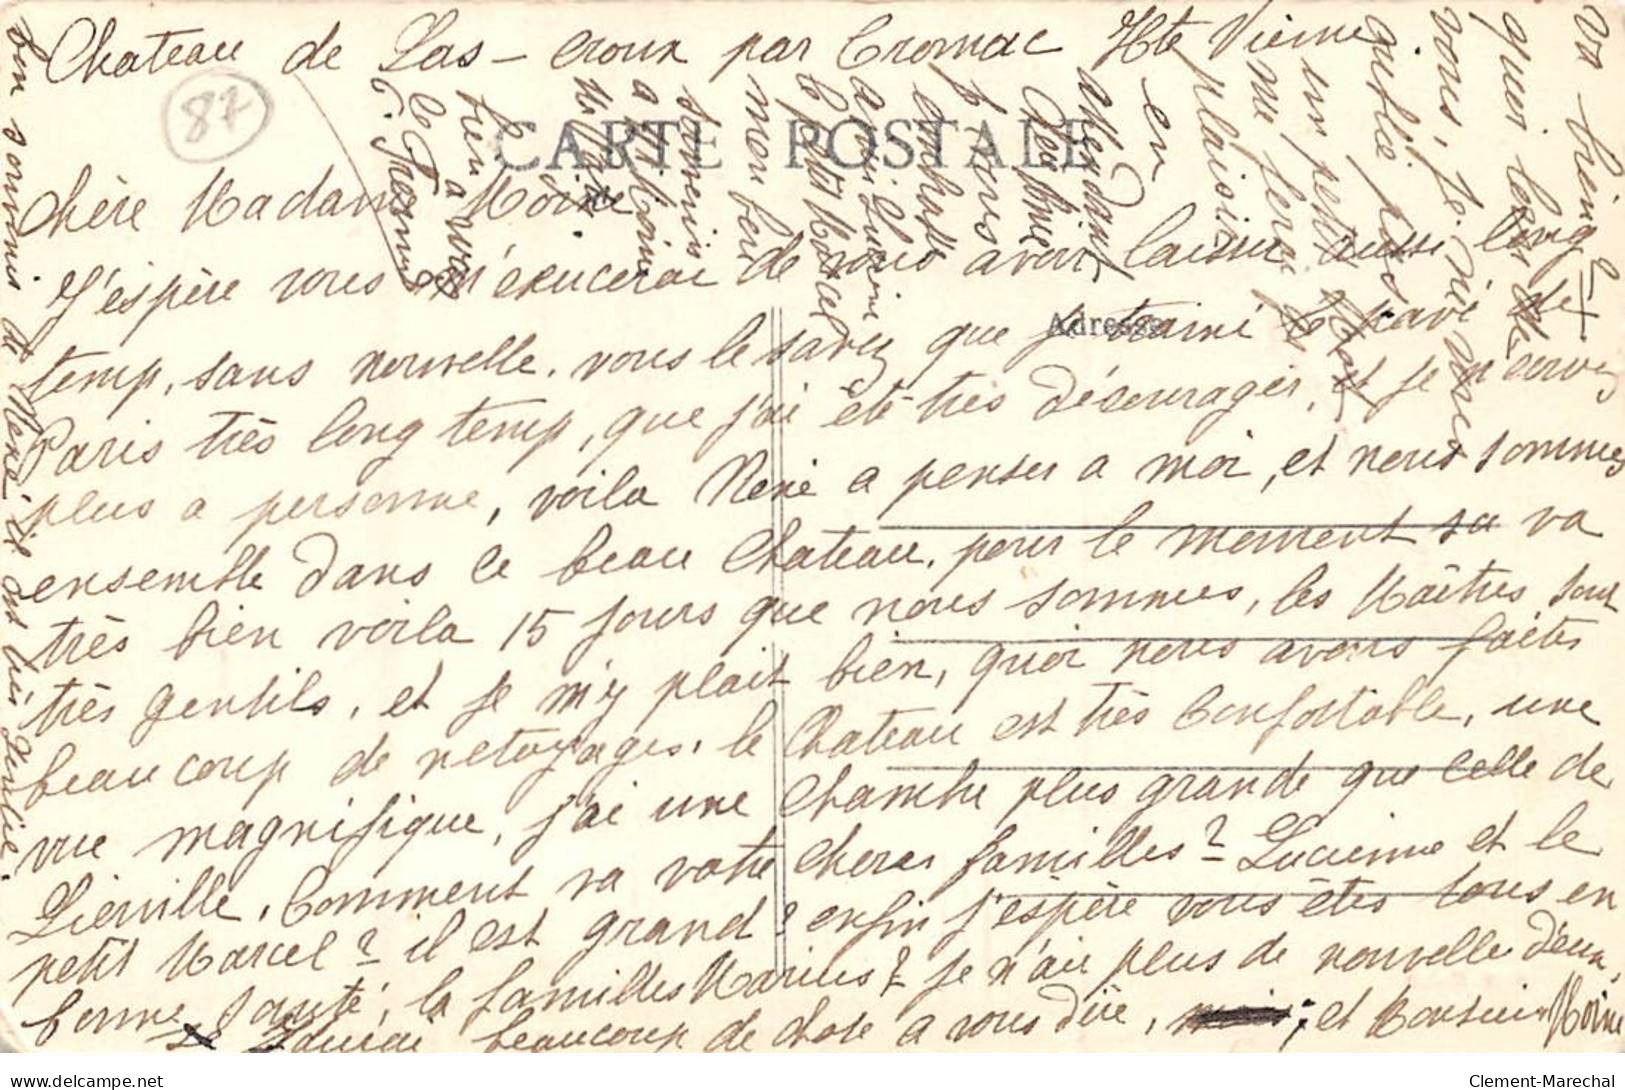 Chateau de Las-croux par Cromac Hte Vienne
87
CARTE POSTALE
Adresse
Chère Madame Moine
J'espère vous m'exucerai de vous avoir laisser aussi long
temp, sans nouvelle. vous le savez que je trainé le pavé de
Paris très long temp, que j'ai été très décourager, et je n'ecrivez
plus a personne, voila René a penser a moi, et nous sommes
ensemble dans ce beau Chateau, pour le moment sa va
très bien voila 15 jours que nous sommes, les Maîtres sont
très gentils, et je m'y plait bien, quoi nous avons faites
beaucoup de netoyages, le Chateau est très Confortable, une
vue magnifique, j'ai une Chambre plus grande que celle de
Lierville, Comment va votre cheres familles? Lucienne et le
petit Marcel? il est grand? enfin j'espère vous êtes tous en
bonne santé, la familles Marius? je n'ai plus de nouvelle d'eux,
Je Saurai beaucoup de chose a vous dire, et Monsieur Moine
va bien
quer
vous, je ni
oublié pas
un petit Mot
me fera
plaisir
en
attendant
je vous
embrasse
ainsi Lucienne
le petit Marcel
mon bon
souvenir
a Moine
bien a vous
bon souvenir de René il est très
Clement-Marechal